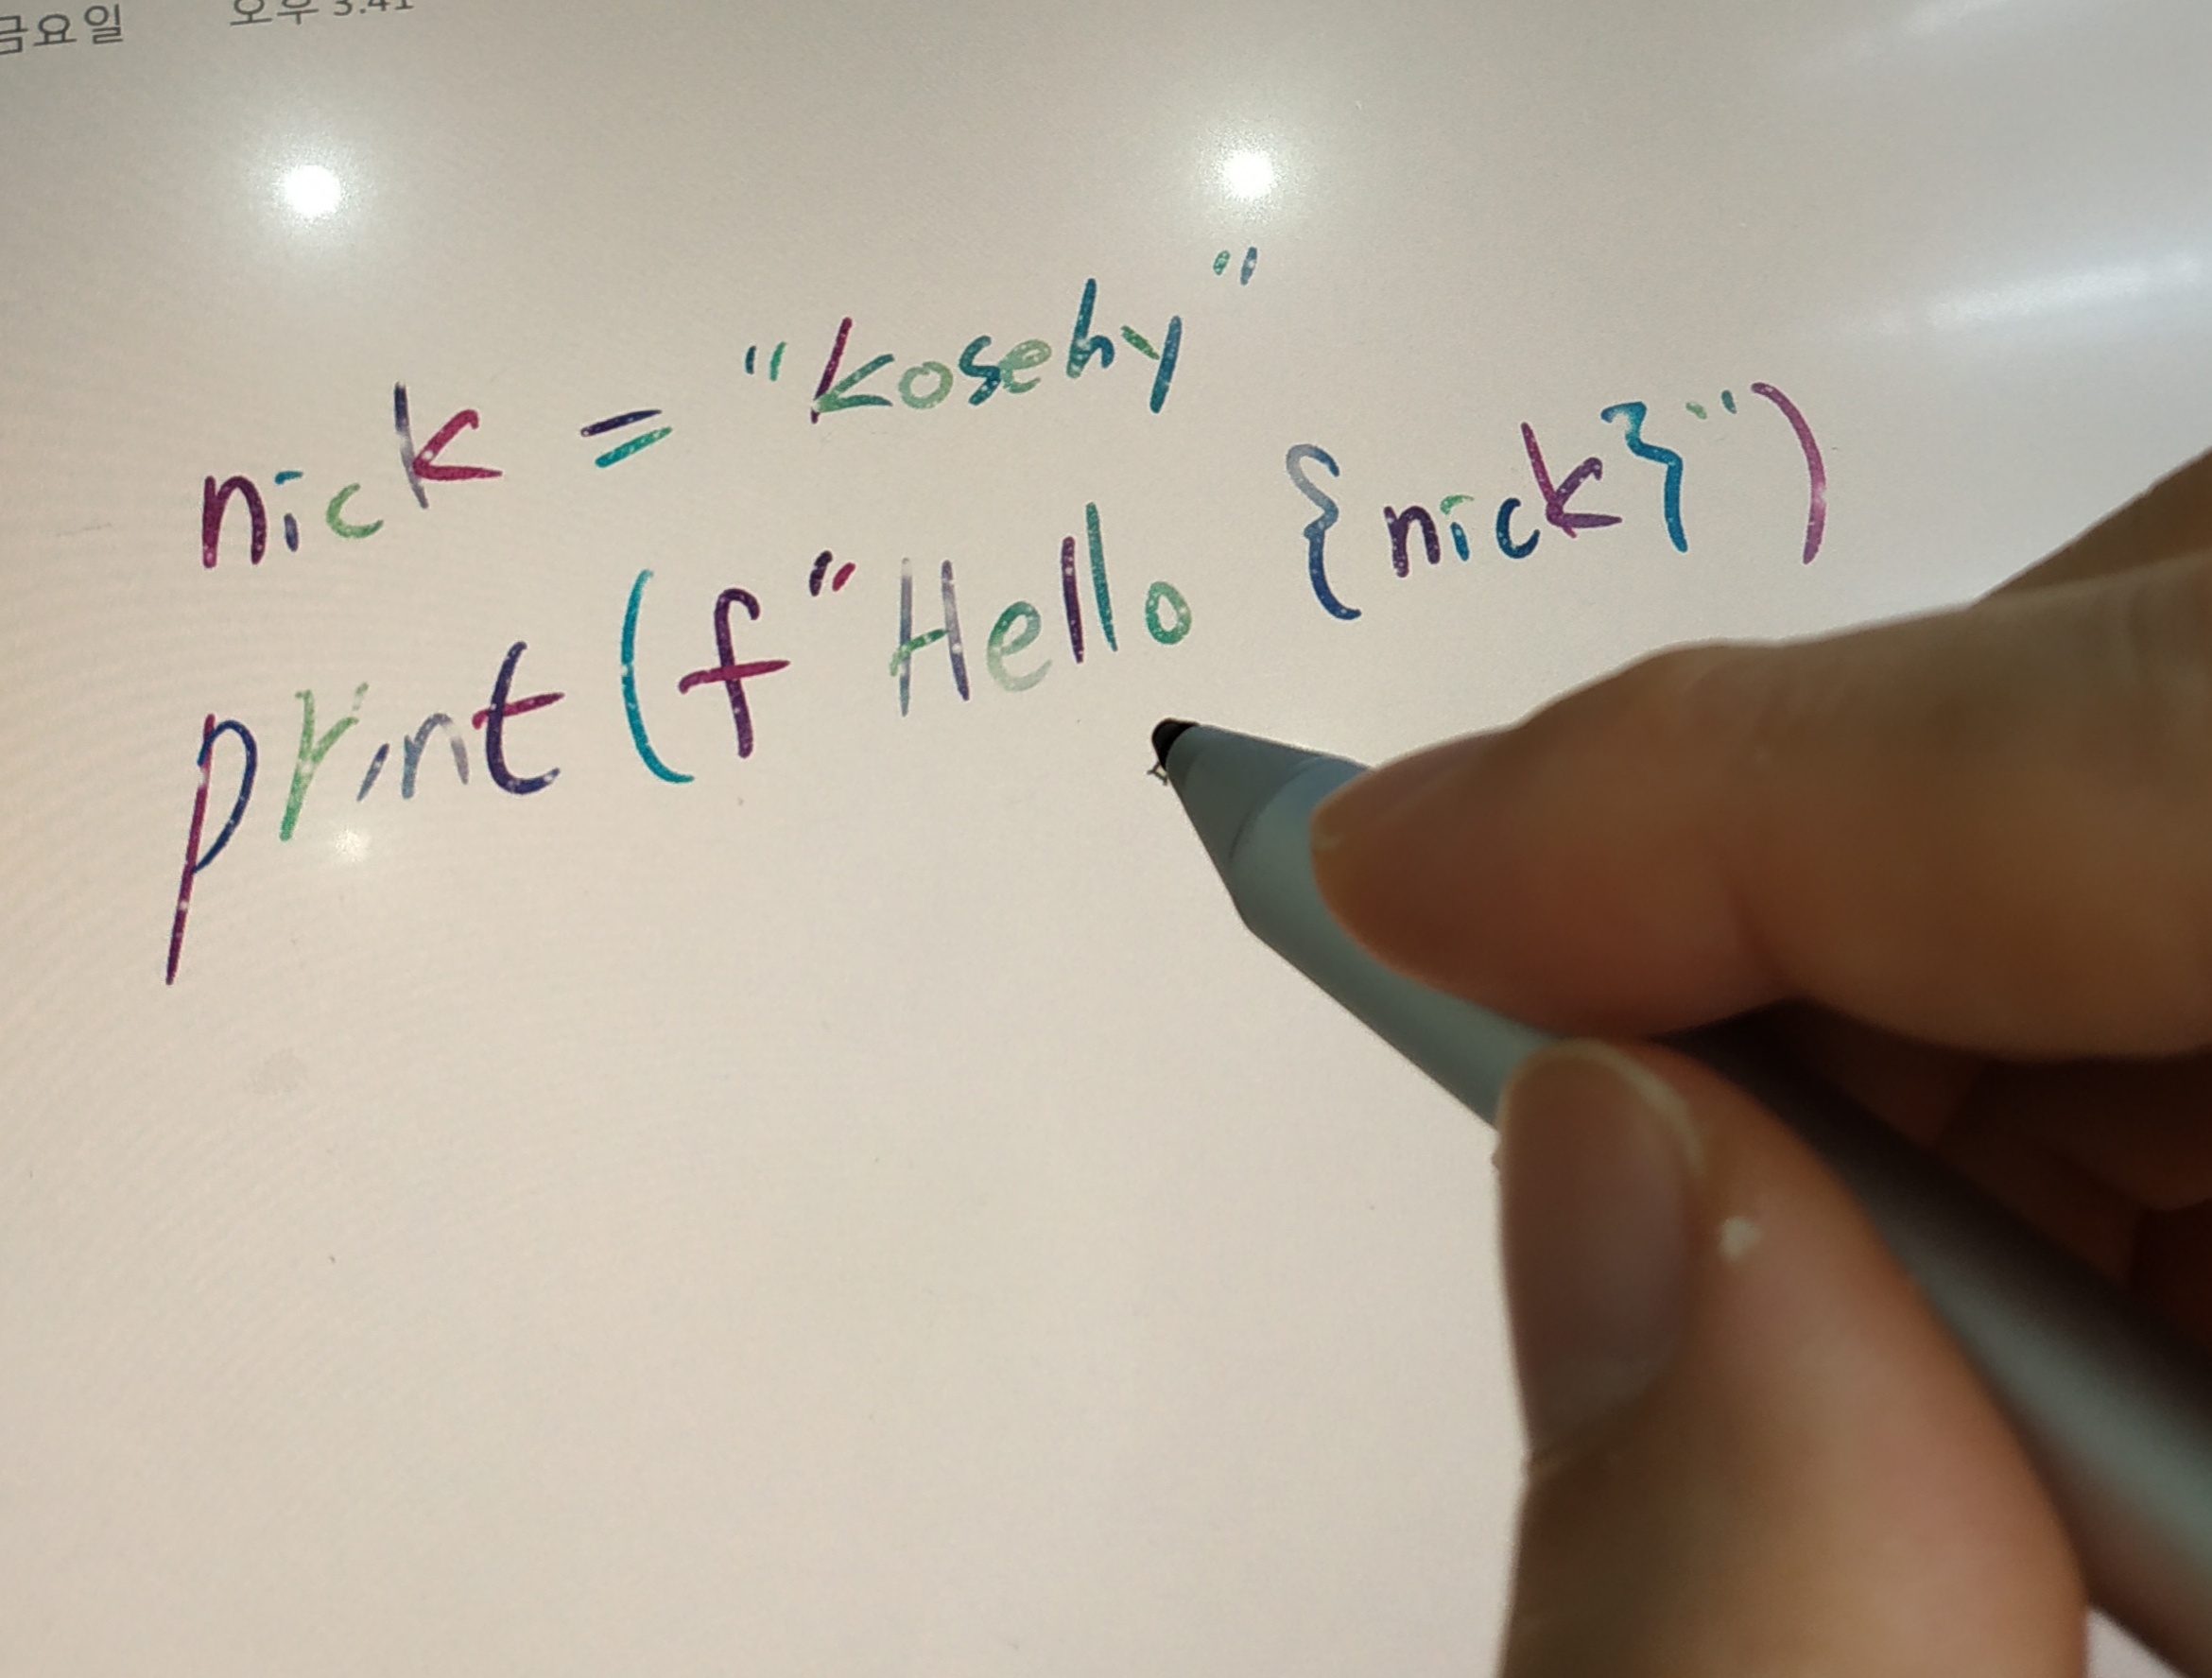 금요일 오후 3:41
nick = "kosehy"
print(f"Hello {nick}")